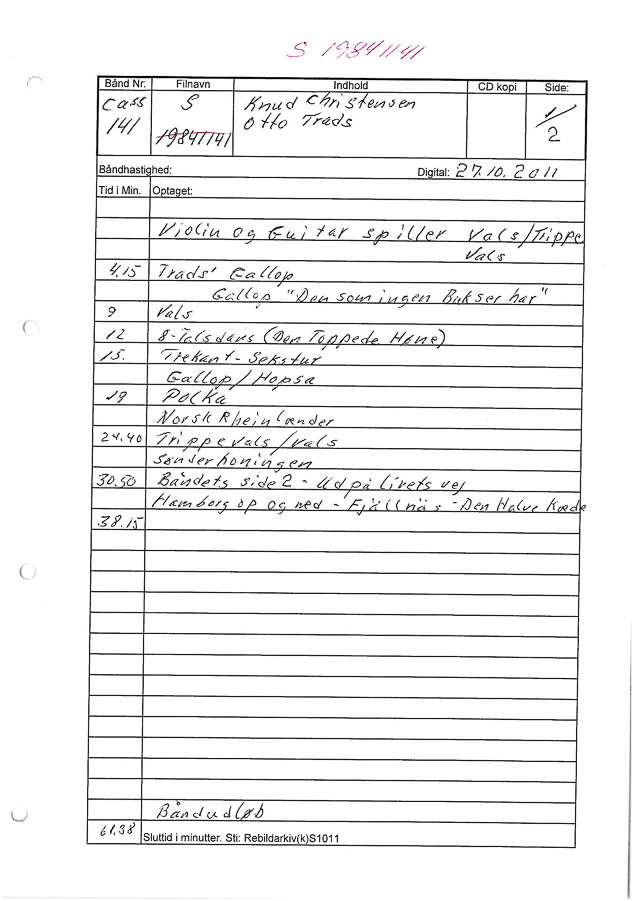 S 19841141
Bånd Nr. Filnavn Indhold CD kopi Side:
Cass S Knud Christensen 1/
141 19841141 Otto Trads 2
Båndhastighed: Digital: 27.10.2011
Tid i Min. Optaget:
Violin og Guitar spiller Vals/Trippe
Vals
4.15 Trads' Gallop
Gallop "Den som ingen Bukser har"
9 Vals
12 8-Talsdans (Den Toppede Høne)
15. Trekant-Sekstur
Gallop/Hopsa
19 Polka
Norsk Rheinlænder
24.40 Trippevals/vals
Sønderhoningen
30.50 Båndets side 2 - Ud på livets vej
Hamborg op og ned - Fjällnäs - Den Halve Kæde
38.15
Båndudløb
61.38 Sluttid i minutter. Sti: Rebildarkiv(k)S1011